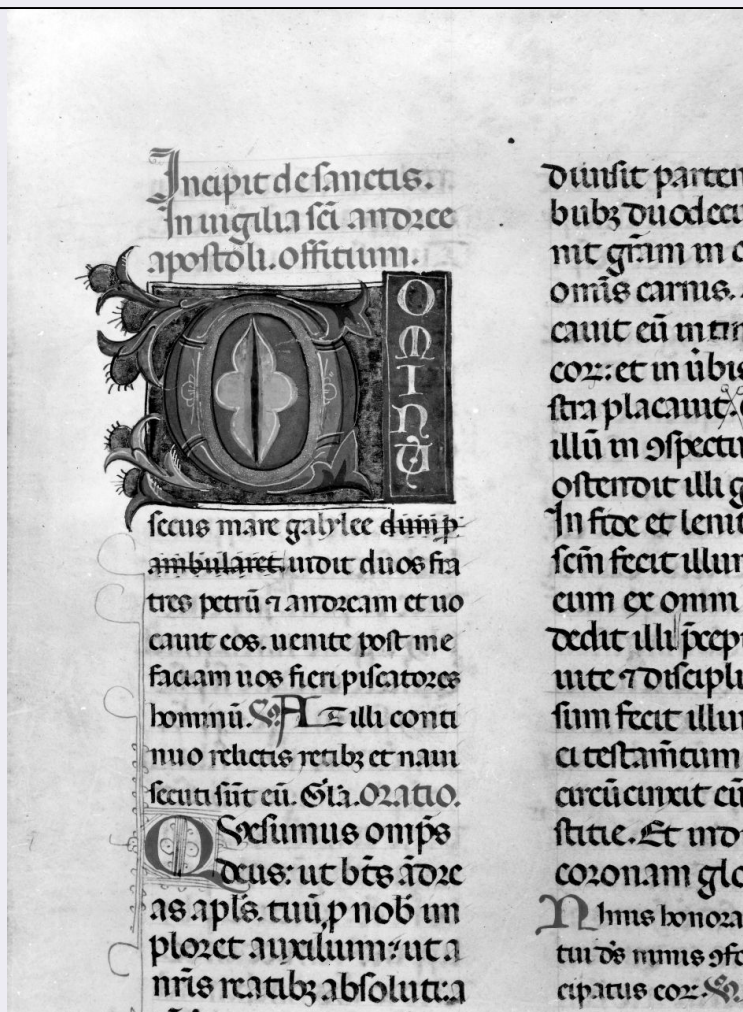 Incipit de sanctis.
In uigilia sc̄i andree
apostoli. offitium.
DOMINUS
secus mare galylee dum p̱
ambularet. uidit duos fra
tres petrū ⁊ andream et uo
cauit eos. uenite post me
faciam uos fieri piscatores
hominū. At illi conti
nuo relictis retibꝫ et naui
secuti sūt eū. Gl̄a. oratio.
Quesumus omp̄s
deus: ut bt̄s ādre
as apl̄s. tuū ꝓ nob̄ im
ploret auxilium: ut a
nr̄is reatibꝫ absoluti: a
diuisit parte
bubꝫ duodeci
nit gr̄am in o
om̄is carnis.
cauit eū in tī
cor: et in ūbis
stra placauit.
illū in ꝯspectu
ostendit illi g
In fide et lenit
sc̄m fecit illum
eum ex omni
dedit illi p̄cep
uite ⁊ discipli
sum fecit illum
ci testam̄tum
circū cinxit eū
stitie. Et ind
coronam glo
Nimis honora
tui dē nimis ꝯfo
cipatus eor.